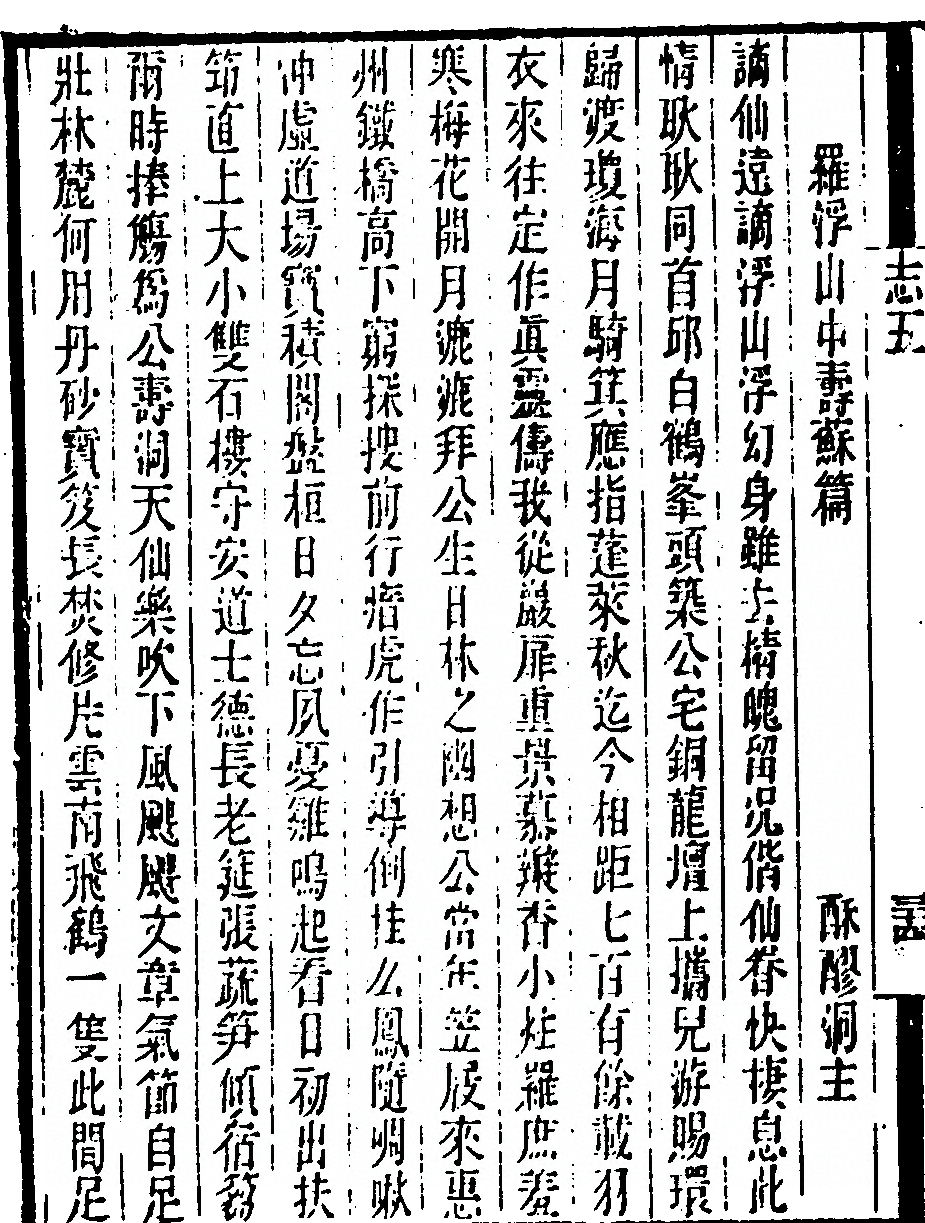 志五
羅浮山中壽蘇篇
酥醪洞主
謫仙遠謫浮山浮幻身雖去精魄留况偕仙眷快棲息此
情耿耿同首邱白鶴峯頭築公宅銅龍壇上攜兒游賜環
歸渡瓊海月騎箕應指蓬萊秋迄今相距七百有餘載羽
衣來往定作眞靈儔我從巖扉重景慕瓣香小炷羅庶羞
寒梅花開月漉漉拜公生日林之幽想公當年笠屐來惠
州鐵橋高下窮探搜前行瘖虎作引導倒挂么鳳隨啁啾
冲虛道場寶積閣盤桓日夕忘夙憂雞鳴起看日初出扶
筇直上大小雙石樓守安道士德長老筵張蔬笋傾宿篘
爾時捧觴爲公壽洞天仙樂吹下風颼颼文章氣節自足
壯林麓何用丹砂寶笈長焚修片雲南飛鶴一隻此間足